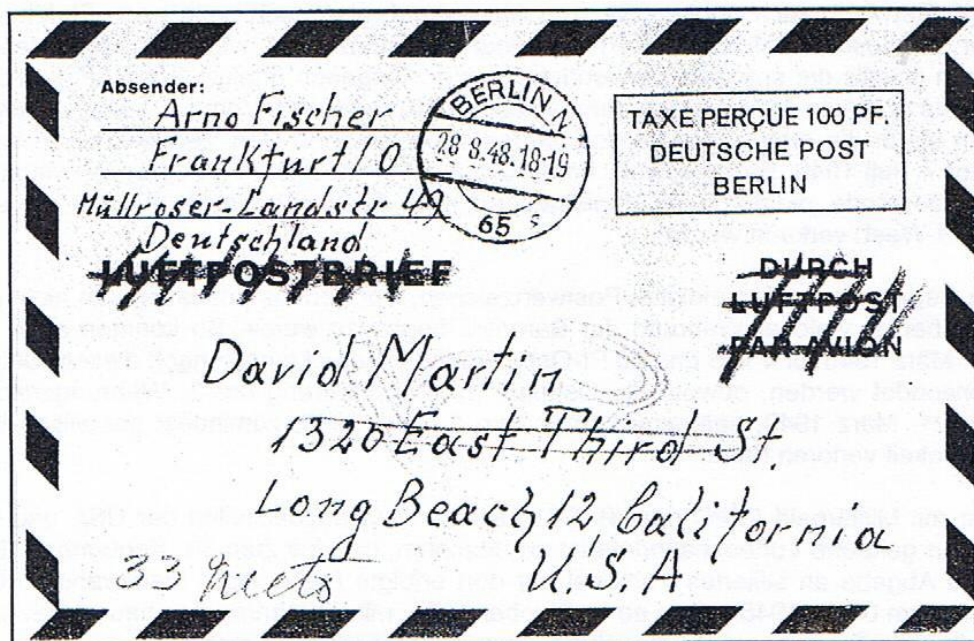 Absender:
Arno Fischer
Frankfurt/O
Müllroser-Landstr 49
Deutschland
BERLIN N
28 8.48.18-19
65 s
TAXE PERÇUE 100 PF.
DEUTSCHE POST
BERLIN
LUFTPOSTBRIEF
DURCH
LUFTPOST
PAR AVION
David Martin
1320 East Third St.
Long Beach 12 California
U.S.A.
33